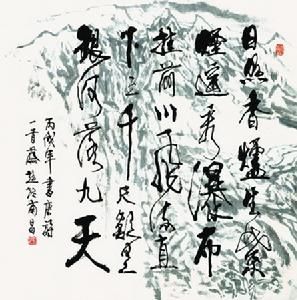 日照香爐生紫
煙遙看瀑布
挂前川飛流直
下三千尺疑是
銀河落九天
丙戌年書唐詩
一首於南昌